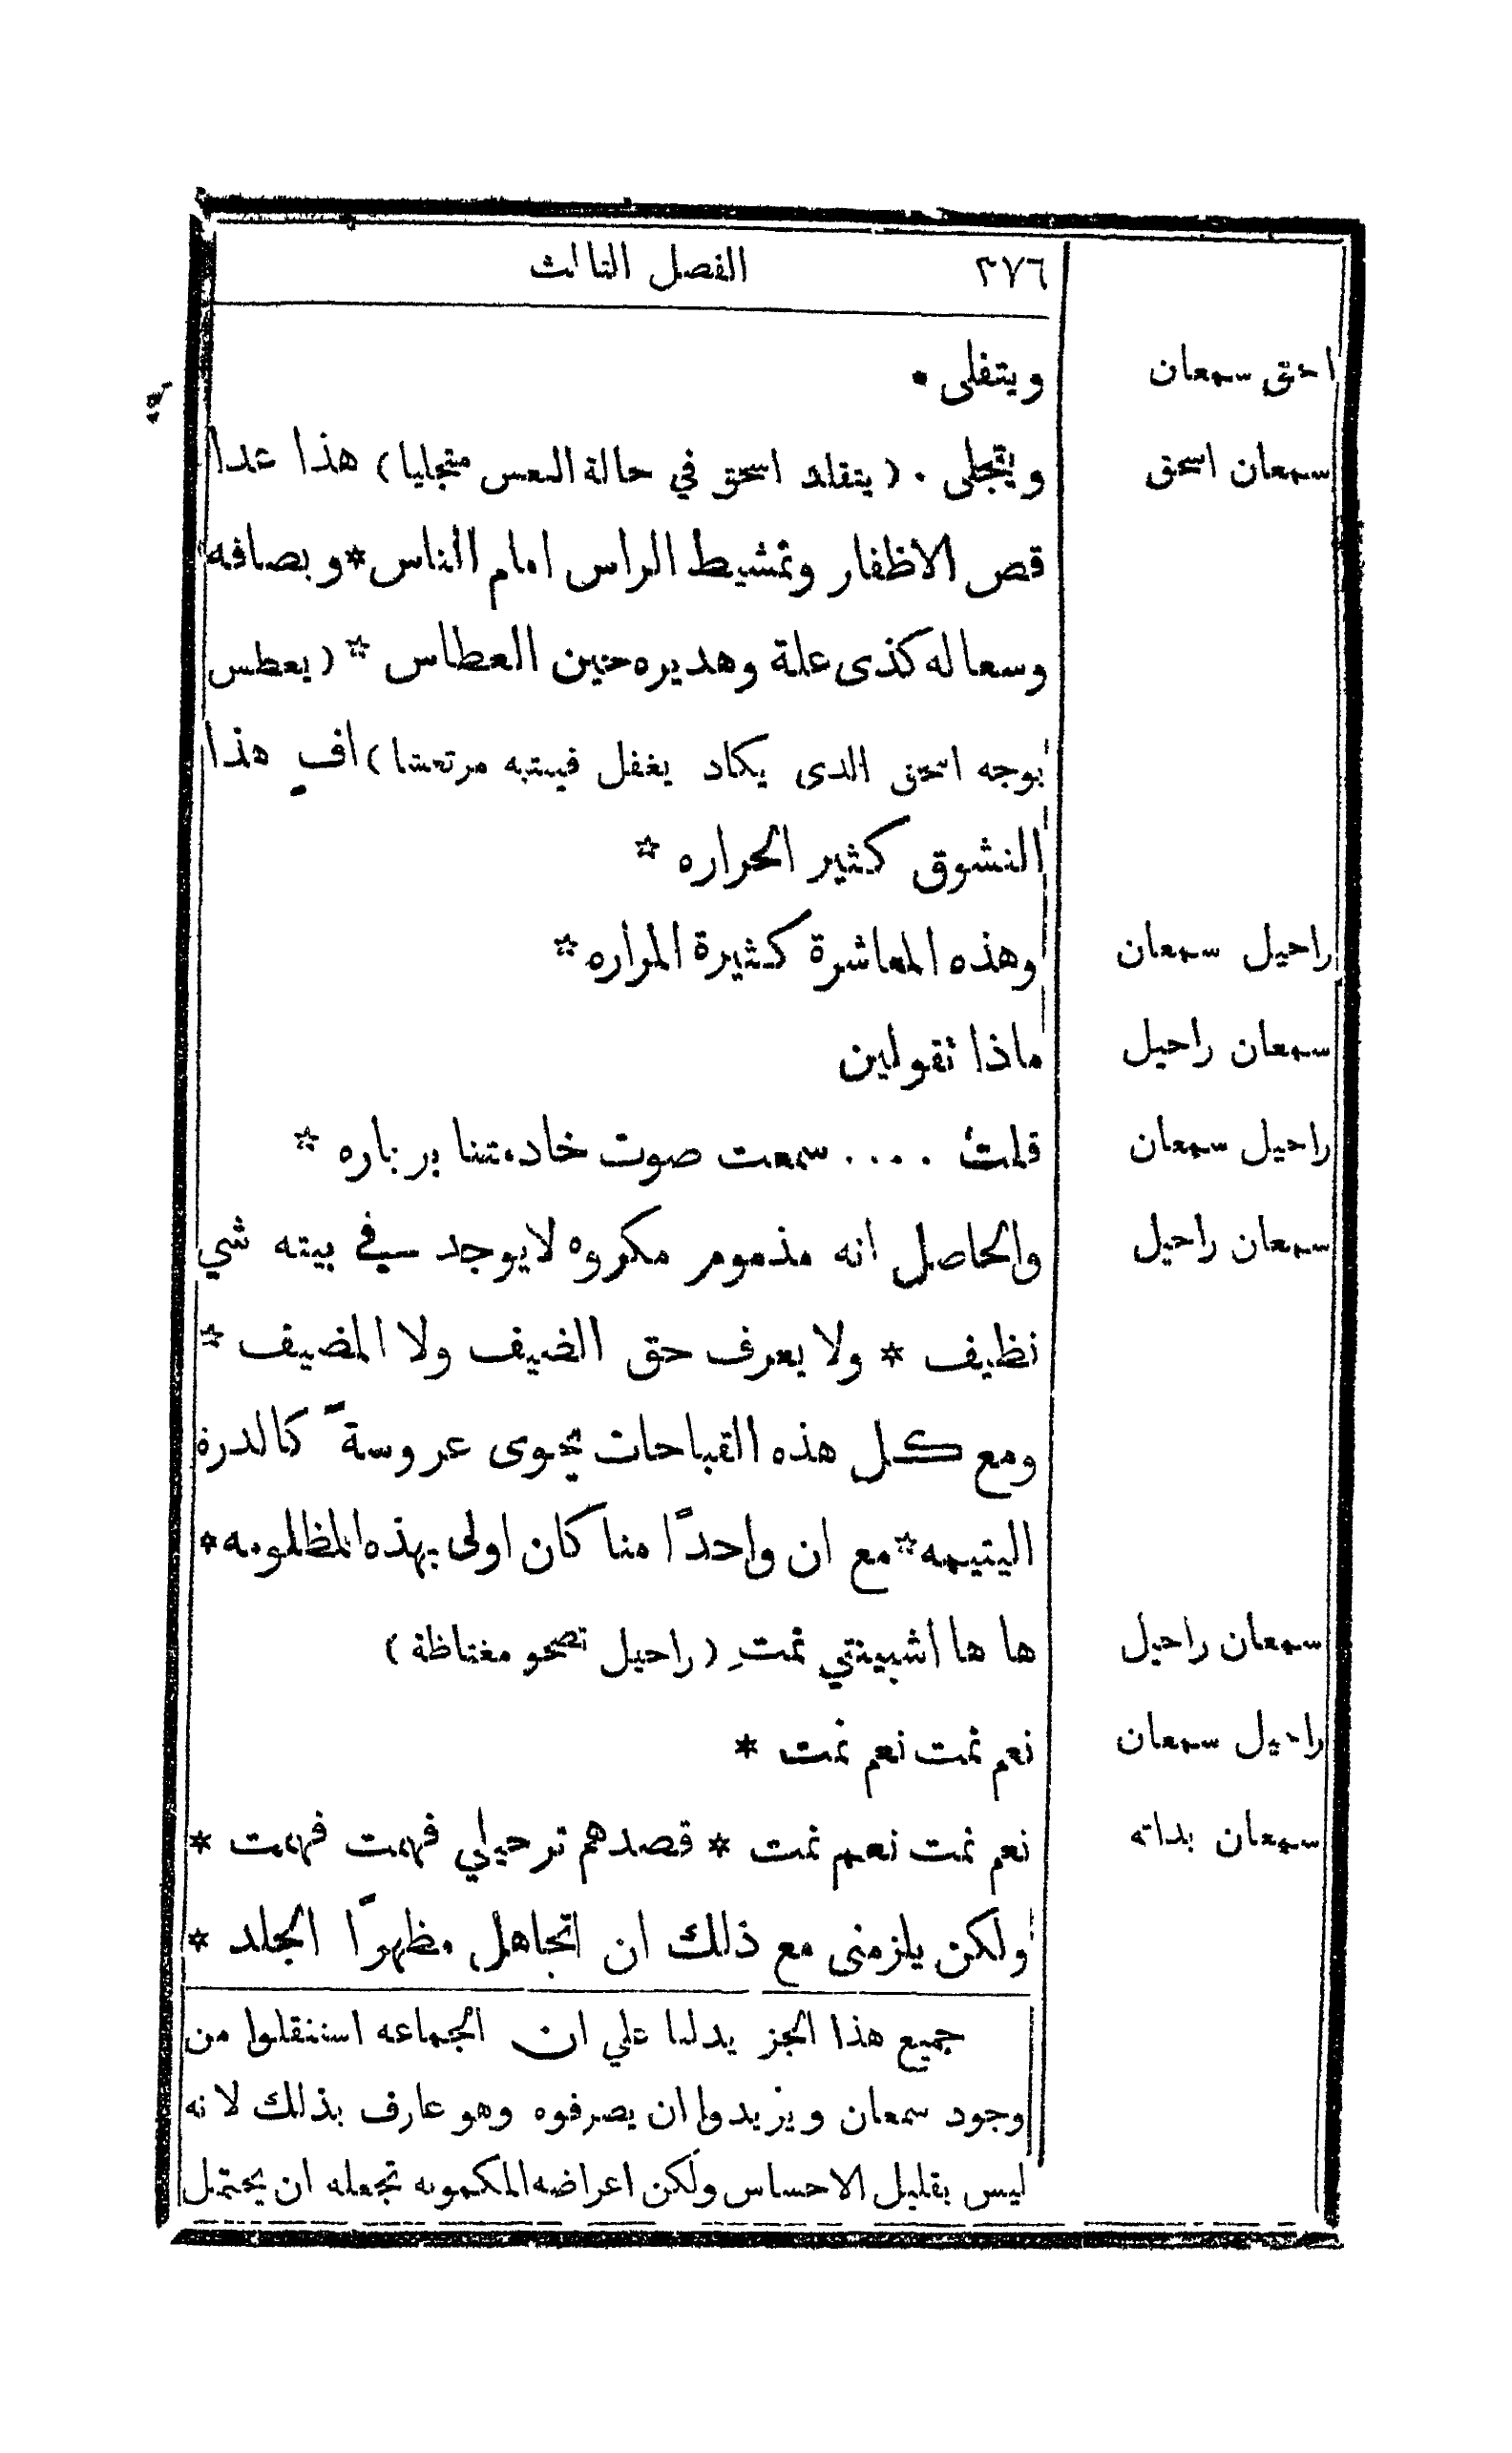 ٣٧٦ الفصل الثالث
اسحق سمعان ويتفلى .
سمعان اسحق ويتجلى . ( يتقلد اسحق في حالة النعس متجليا ) هذا عدا
قص الاظفار وتمشيط الراس امام الناس * وبصافه
وسعاله كذى علة وهديره حين العطاس * ( يعطس
بوجه اسحق الدى يكاد يغفل فيـتبه مرتعشا ) افٍ هذا
النشوق كثير الحراره *
راحيل سمعان وهذه المعاشرة كثيرة المراره *
سمعان راحيل ماذا تقولين
راحيل سمعان قلتُ .... سمعت صوت خادمتنا برباره *
سمعان راحيل والحاصل انه مذموم مكروه لا يوجد في بيته شي
نظيف * ولا يعرف حق الضيف ولا المضيف *
ومع كل هذه القباحات يحوى عروسةً كالدرة
اليتيمه * مع ان واحدًا منا كان اولى بهذه المظلومه *
سمعان راحيل ها ها اشبينتي نمتِ ( راحيل تصحو مغتاظة )
راحيل سمعان نعم نمت نعم نمت *
سمعان بداته نعم نمت نعم نمت * قصدهم ترحيلي فهمت فهمت *
ولكن يلزمنى مع ذلك ان اتجاهل مظهرًا الجلد *
جميع هذا الجز يدلنا علي ان الجماعه استثقلوا من
وجود سمعان ويزيدوا ان يصرفوه وهو عارف بذلك لانه
ليس بقليل الاحساس ولكن اعراضه المكمونه تجعله ان يحتمل